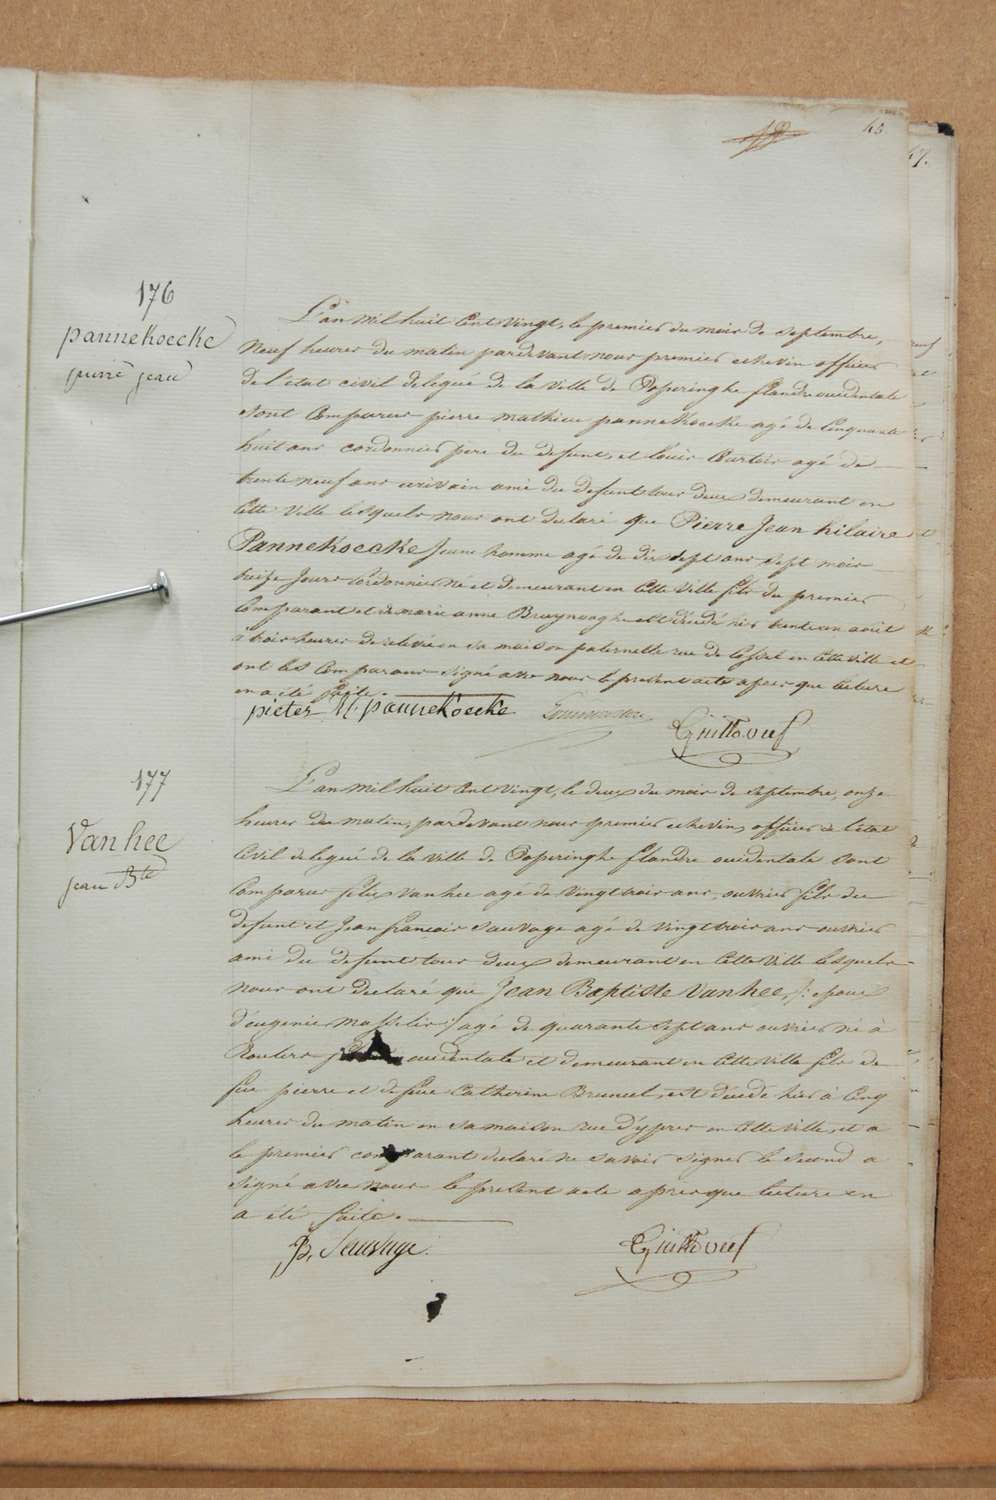 43
47.
176
pannekoecke
pierre jean
L'an mil huit cent vingt, le premier du mois de septembre,
neuf heures du matin pardevant nous premier echevin officier
de l'etat civil delegué de la ville de Poperinghe flandre occidentale
sont comparus pierre mathieu pannekoecke agé de cinquante
huit ans cordonnier pere du defunt, et louis Courtois agé de
trente neuf ans ecrivain ami du defunt tous deux demeurant en
cette ville lesquels nous ont declaré que Pierre Jean hilaire
Pannekoecke jeune homme agé de dix sept ans sept mois
treize jours cordonnier né et demeurant en cette ville fils du premier
comparant et de marie anne Bruynooghe est décédé hier trente un août
à trois heures de relevée en sa maison paternelle rue de cassel en cette ville et
ont les comparans signé avec nous le present acte après que lecture
en a été faite.
pieter M pannekoecke
Guittoouf
177
Vanhee
jean Bte
L'an mil huit cent vingt, le deux du mois de septembre, onze
heures du matin, pardevant nous premier echevin, officier de l'état
civil delegué de la ville de Poperinghe flandre occidentale sont
comparus felix vanhee agé de vingt trois ans, ouvrier fils du
defunt et jean françois sauvage agé de vingt trois ans ouvrier
ami du defunt tous deux demeurant en cette ville lesquels
nous ont declaré que Jean Baptiste Vanhee, /: epoux
d'eugenie :/ agé de quarante sept ans ouvrier né à
Roulers occidentale et demeurant en cette ville fils de
feu pierre et de feue Catherine Bruneel, est décédé hier à cinq
heures du matin en sa maison rue d'ypres en cette ville, et a
le premier comparant declaré ne savoir signer le second a
signé avec nous le present acte après que lecture en
a été faite.
Sauvage.
Guittoouf